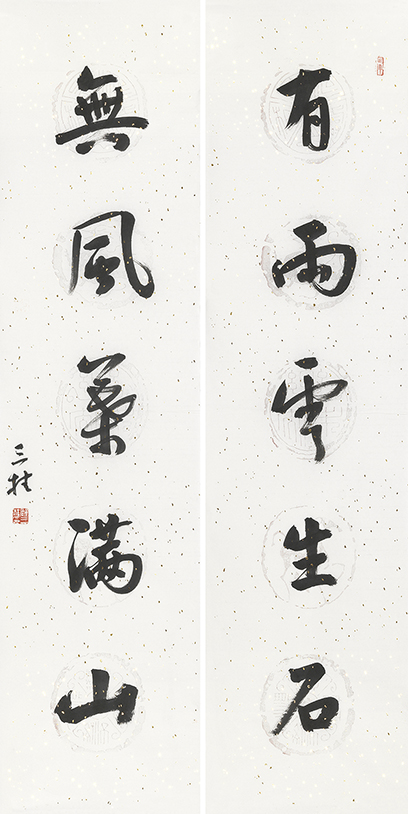 有雨雲生石
無風葉滿山
三